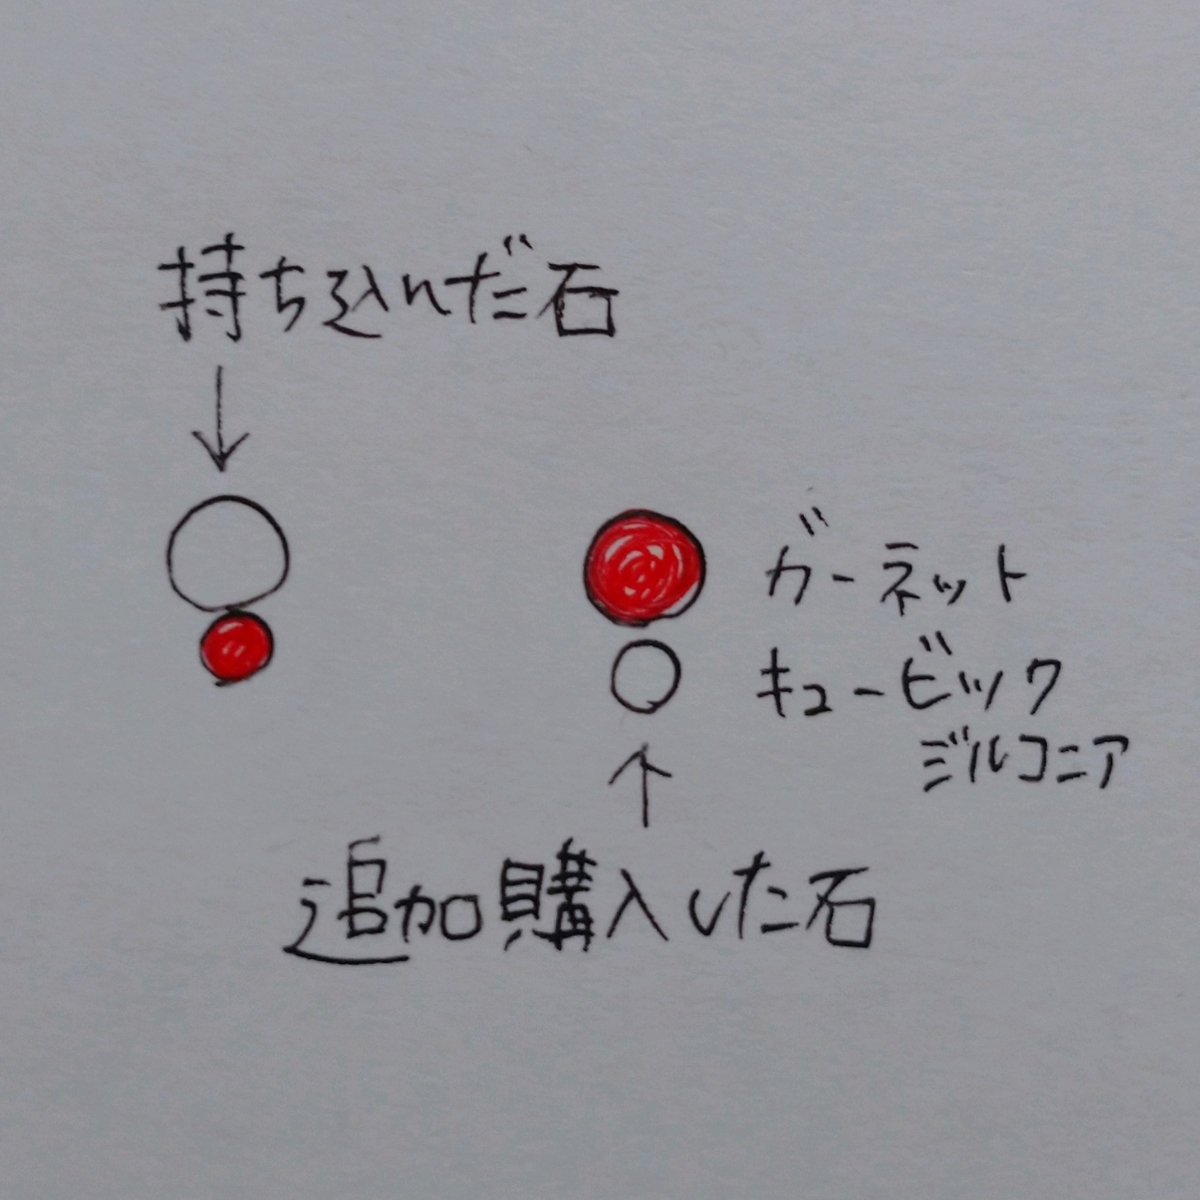 持ち込んだ石
ガーネット
キュービック
ジルコニア
追加購入した石